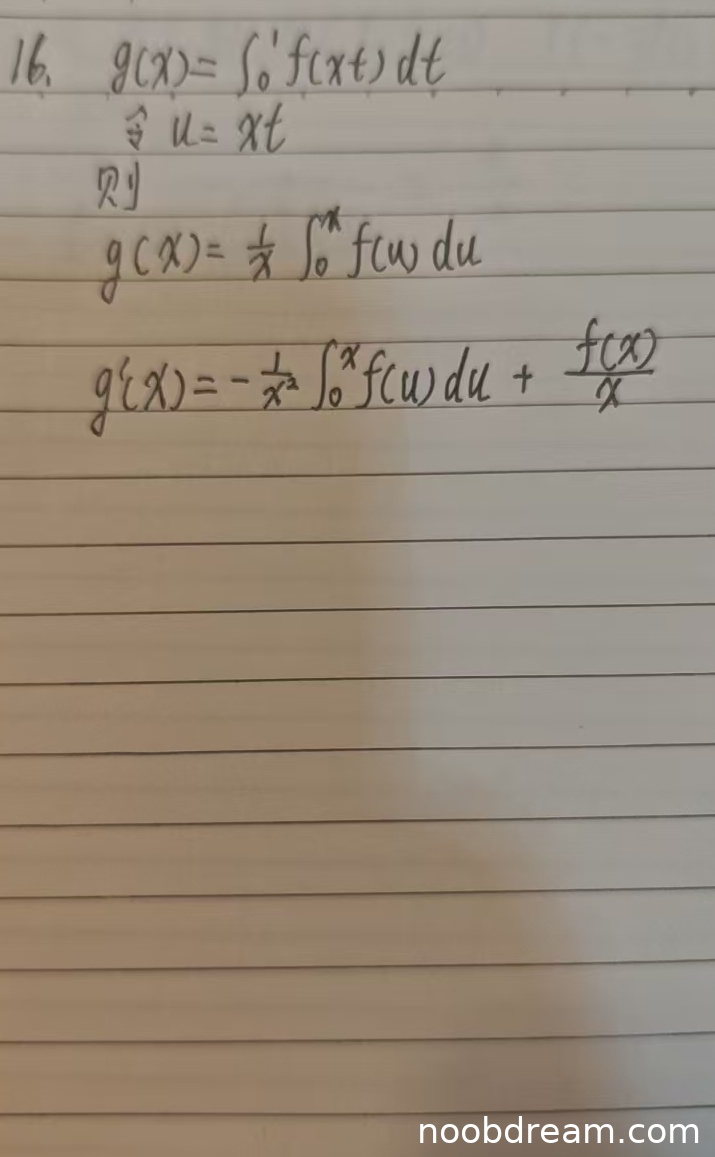 16. g(x)=∫₀¹f(xt)dt
令 u=xt
则
g(x)=\frac{1}{x}∫₀ˣf(u)du
g'(x)=-\frac{1}{x²}∫₀ˣf(u)du+\frac{f(x)}{x}
noobdream.com